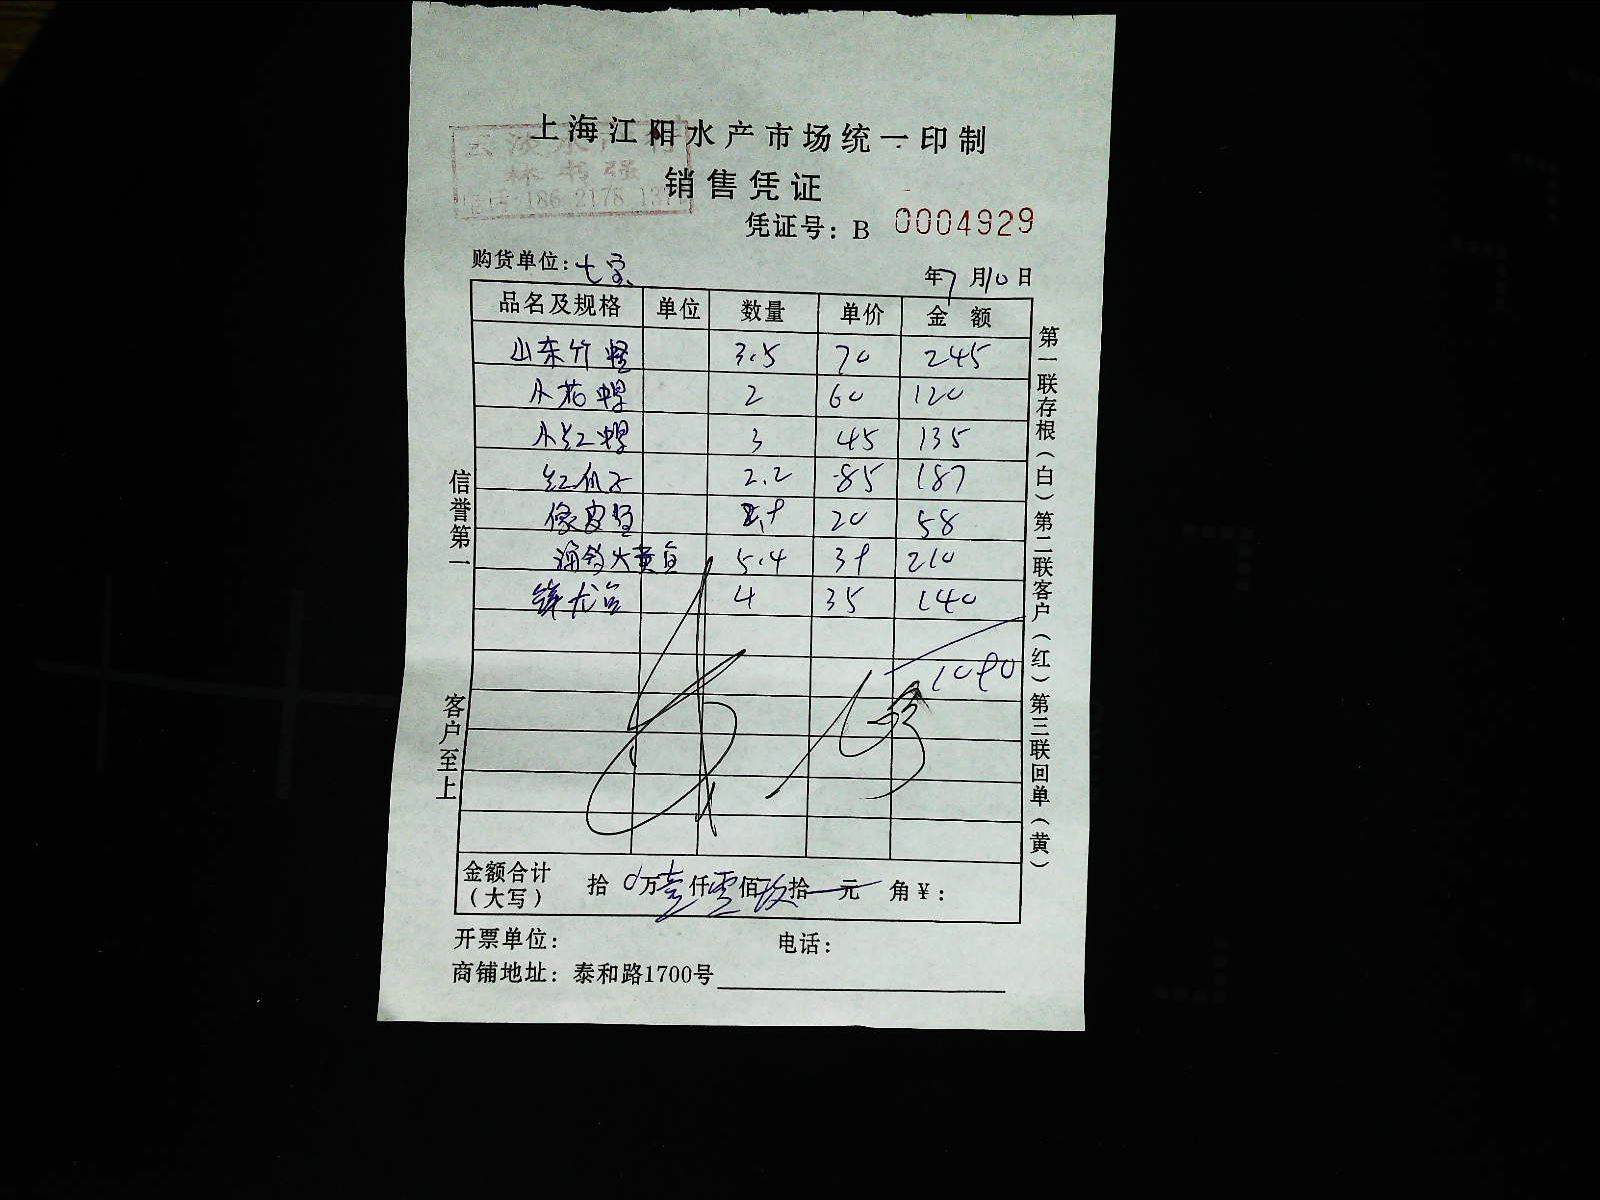 上海江阳水产市场统一印制
林书强
186 2178
销售凭证
凭证号：B 0004929
购货单位：七宝
年7月10日
品名及规格 单位 数量 单价 金额
山东竹蛏 3.5 70 245
小花螺 2 60 120
小红螺 3 45 135
红瓜子 2.2 85 187
像皮鱼 2.9 20 58
海钓大黄鱼 5.4 39 210
龙 4 35 140
1090
金额合计（大写） 拾 0万壹仟零佰玖拾 元 角￥：
开票单位： 电话：
商铺地址：泰和路1700号
信誉第一
客户至上
第一联存根（白）第二联客户（红）第三联回单（黄）